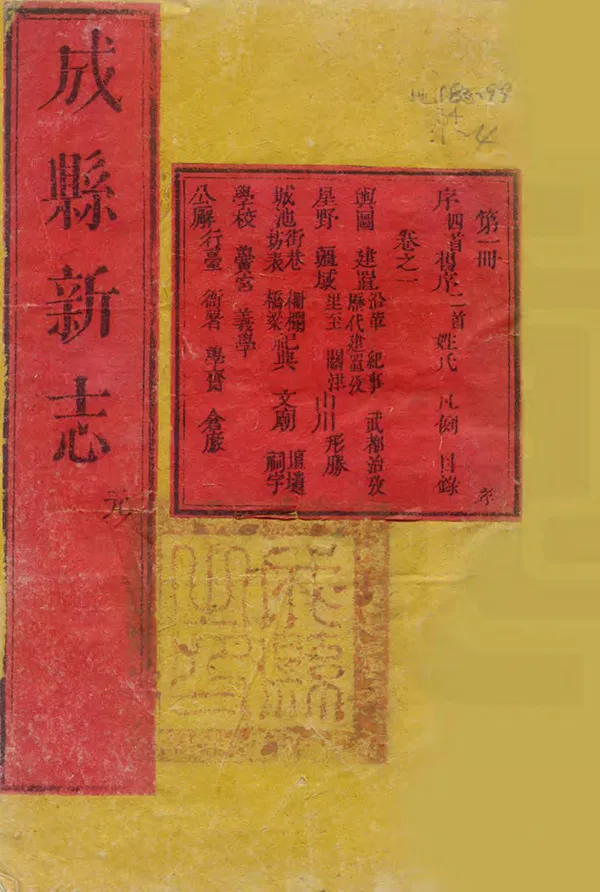 成縣新志
第一冊
序四首舊序二首 姓氏 凡例 目錄
卷之一
輿圖 建置沿革 歷代建置攷 紀事 武都治攷
星野 疆域里至 關津 山川 形勝
城池街巷 坊表 柵欄 橋梁 祀典 文廟 壇壝 祠宇
學校 黌宮 義學
公廨行臺 衙署 學齋 倉廒